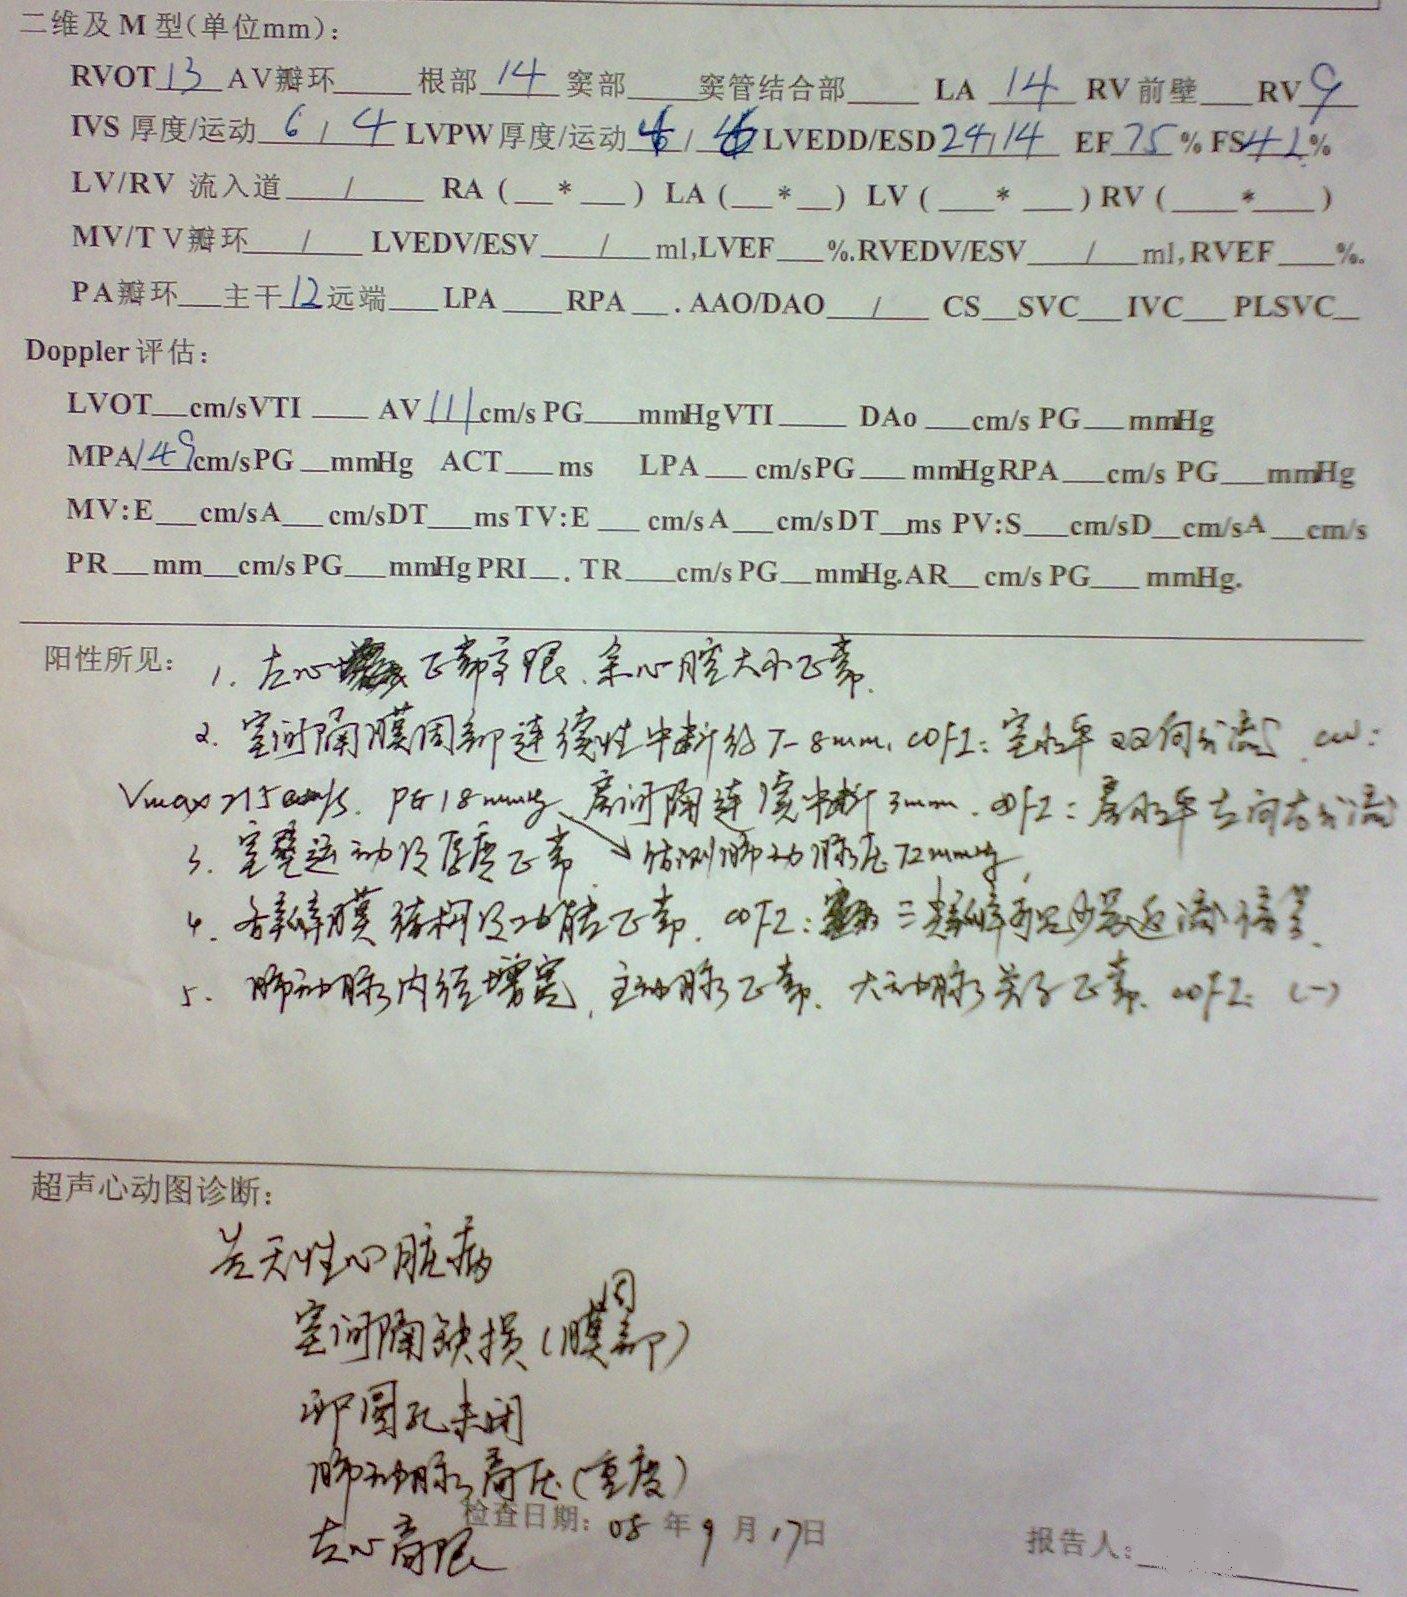 二维及 M 型(单位mm):
RVOT 13 AV瓣环____ 根部 14 窦部____窦管结合部____ LA 14 RV 前壁___RV 9
IVS 厚度/运动 6 / 4 LVPW厚度/运动 / 6 LVEDD/ESD 24/14 EF 75 % FS 42 %
LV/RV 流入道____/____ RA (__*__) LA (__*__) LV (___*___) RV (____*____)
MV/T V瓣环___/___ LVEDV/ESV____/___ ml,LVEF___%.RVEDV/ESV____/___ml,RVEF____%.
PA瓣环___主干 12 远端___LPA____RPA__. AAO/DAO___/___ CS__SVC___IVC___PLSVC__
Doppler 评估:
LVOT__cm/sVTI ____ AV 111 cm/s PG___mmHgVTI____ DAo ___cm/s PG___mmHg
MPA 149 cm/sPG __mmHg ACT___ms LPA___cm/sPG___mmHgRPA___cm/s PG___mmHg
MV:E___cm/sA___cm/sDT___ms TV:E ___cm/sA___cm/sDT__ms PV:S___cm/sD__cm/sA__cm/s
PR___mm__cm/s PG___mmHg PRI__. TR____cm/s PG__mmHg.AR__ cm/s PG___ mmHg.
阳性所见: 1. 左心 正常高限、余心腔大小正常.
2. 室间隔膜周部连续性中断约7-8mm, CDFI: 室水平双向分流, cw:
Vmax 215cm/s. PG 18mmHg, 房间隔连续中断3mm. CDFI: 房水平左向右分流
3. 室壁运动及厚度正常 → 估测肺动脉压72mmHg,
4. 各瓣膜结构及功能正常. CDFI: 三尖瓣可见少量返流信号.
5. 肺动脉内径增宽, 主动脉正常. 大动脉关系正常. CDFI: (-)
超声心动图诊断:
先天性心脏病
室间隔缺损(膜周部)
卵圆孔未闭
肺动脉高压(重度)
左心高限
检查日期: 08 年 9 月 17日
报告人: